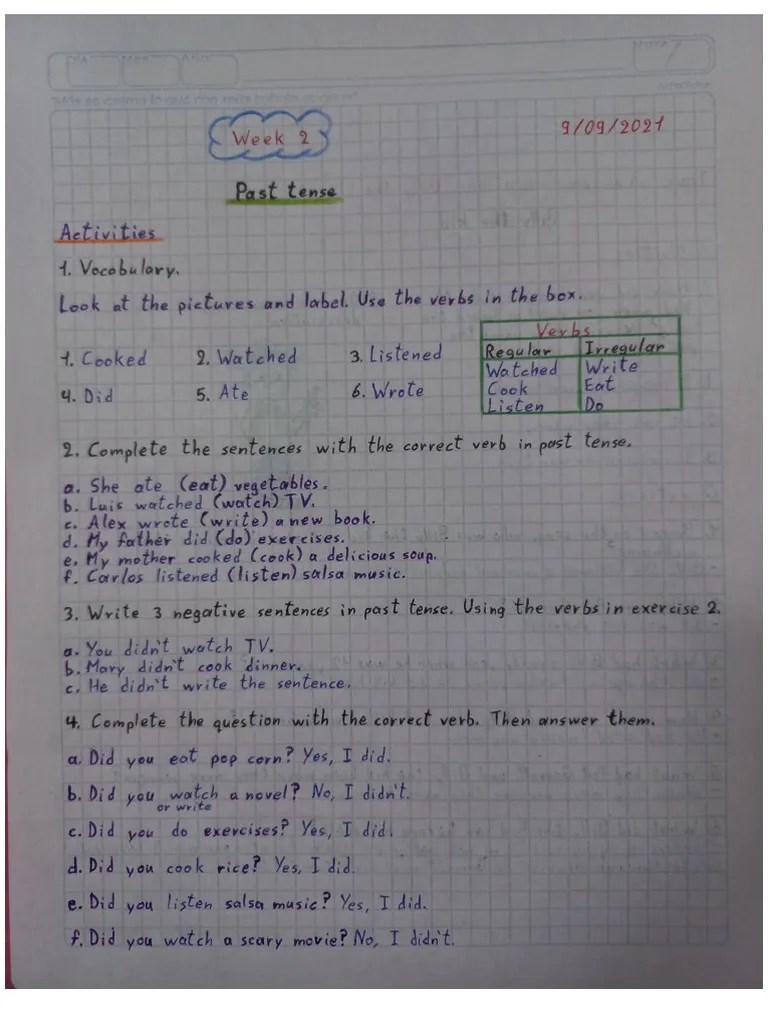 Week 2
9/09/2021
Past tense
Activities
1. Vocabulary.
Look at the pictures and label. Use the verbs in the box.
1. Cooked 2. Watched 3. Listened
4. Did 5. Ate 6. Wrote
Verbs
Regular Irregular
Watched Write
Cook Eat
Listen Do
2. Complete the sentences with the correct verb in past tense.
a. She ate (eat) vegetables.
b. Luis watched (watch) TV.
c. Alex wrote (write) a new book.
d. My father did (do) exercises.
e. My mother cooked (cook) a delicious soup.
f. Carlos listened (listen) salsa music.
3. Write 3 negative sentences in past tense. Using the verbs in exercise 2.
a. You didn't watch TV.
b. Mary didn't cook dinner.
c. He didn't write the sentence.
4. Complete the question with the correct verb. Then answer them.
a. Did you eat pop corn? Yes, I did.
b. Did you watch a novel? No, I didn't.
or write
c. Did you do exercises? Yes, I did.
d. Did you cook rice? Yes, I did.
e. Did you listen salsa music? Yes, I did.
f. Did you watch a scary movie? No, I didn't.